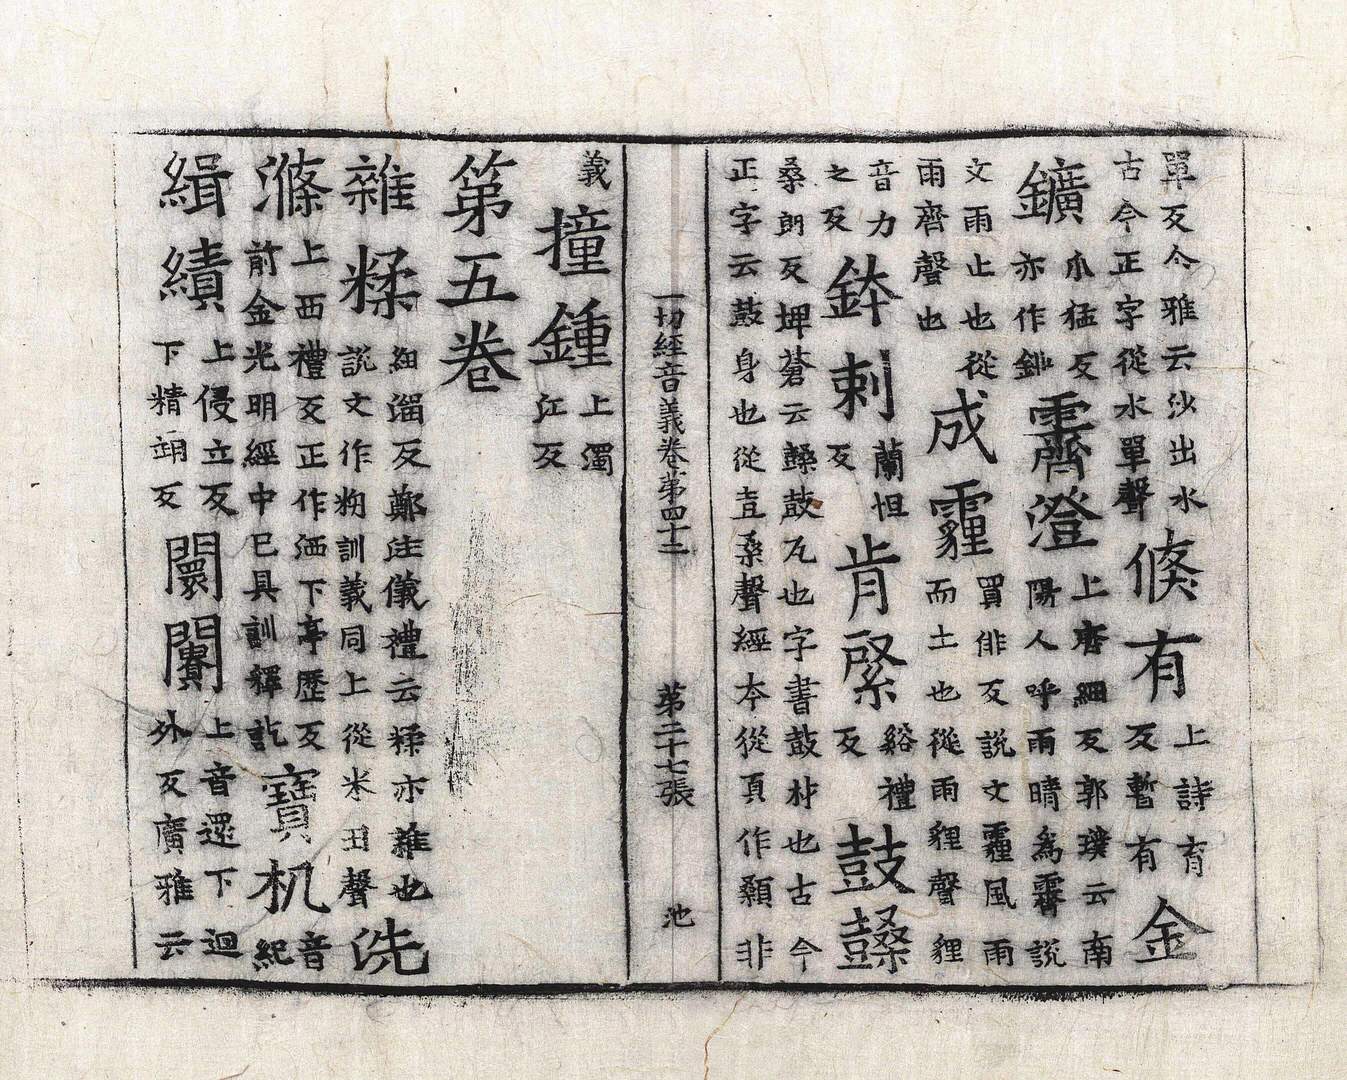 單反今雅云沙出水
古今正字從水單聲
倏有
上詩育
反暫有
金
鑛
爪猛反
亦作鉚
霽澄
上齊細反郭璞云南
陽人呼雨晴為霽說
文雨止也從
雨齊聲也
成霾
買俳反說文霾風雨
而土也從雨貍聲貍
音力
之反
鉢剌
蘭怛
反
肯綮
谿禮
反
鼓𪔭
桑朗反埤蒼云𪔭鼓瓦也字書鼓朴也古今
正字云鼓身也從壴桑聲經本從頁作顙非
一切經音義卷第四十二 第二十七張 池
義
撞鍾
上濁
江反
第五卷
雜糅
紐溜反鄭注儀禮云糅亦雜也
說文作粈訓義同上從米丑聲
洗
滌
上西禮反正作洒下亭歷反
前金光明經中已具訓釋訖
寶机
音
紀
緝績
上侵立反
下精翊反
闤闠
上音還下迴
外反廣雅云